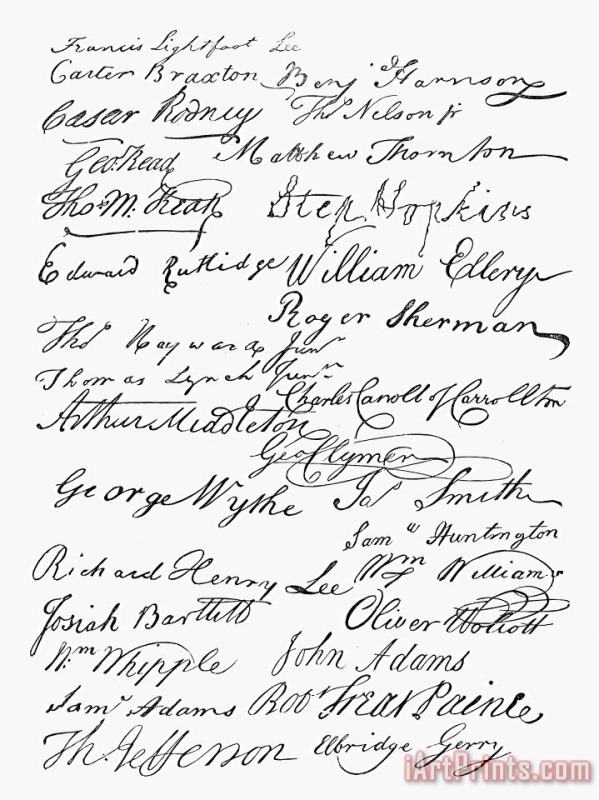 Francis Lightfoot Lee
Carter Braxton Benj Harrison
Caesar Rodney Thos Nelson jr
Geo. Read Matthew Thornton
Tho M. Kean Step Hopkins
Edward Rutlidge William Ellery
Roger Sherman
Thos Hayward Junr
Thomas Lynch Junr
Charles Carroll of Carrollton
Arthur Middleton
Geo Clymer
George Wythe Jas Smith
Saml Huntington
Richard Henry Lee Wm Williams
Josiah Bartlett Oliver Wolcott
Wm Whipple John Adams
Saml Adams Robt Treat Paine
Th. Jefferson Elbridge Gerry
iArtPrints.com